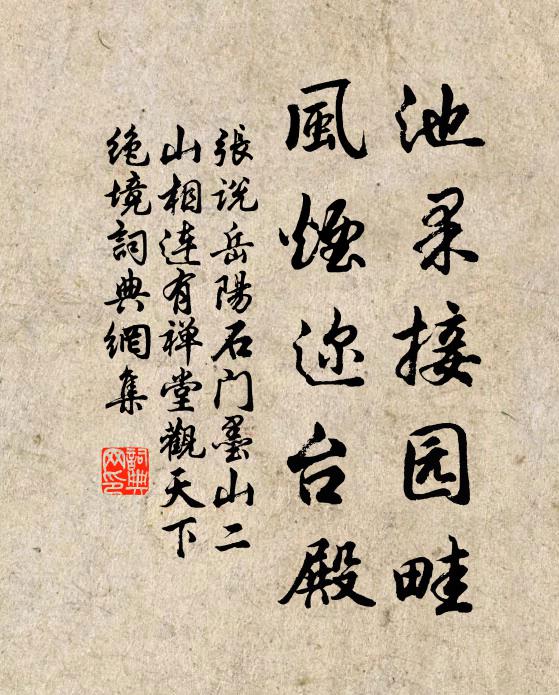 池果接园畦
風煙迩台殿
張说岳陽石门墨山二
山相連有禅堂觀天下
絶境詞典網集
詞典网印